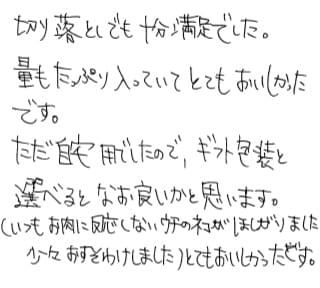 切り落としでも十分満足でした。
量もたっぷり入っていてとてもおいしかった
です。
ただ自宅用でしたので、ギフト包装と
選べるとなお良いかと思います。
(いつもお肉に反応しないウチのネコがほしがりました
少々おすそわけしました)とてもおいしかったです。